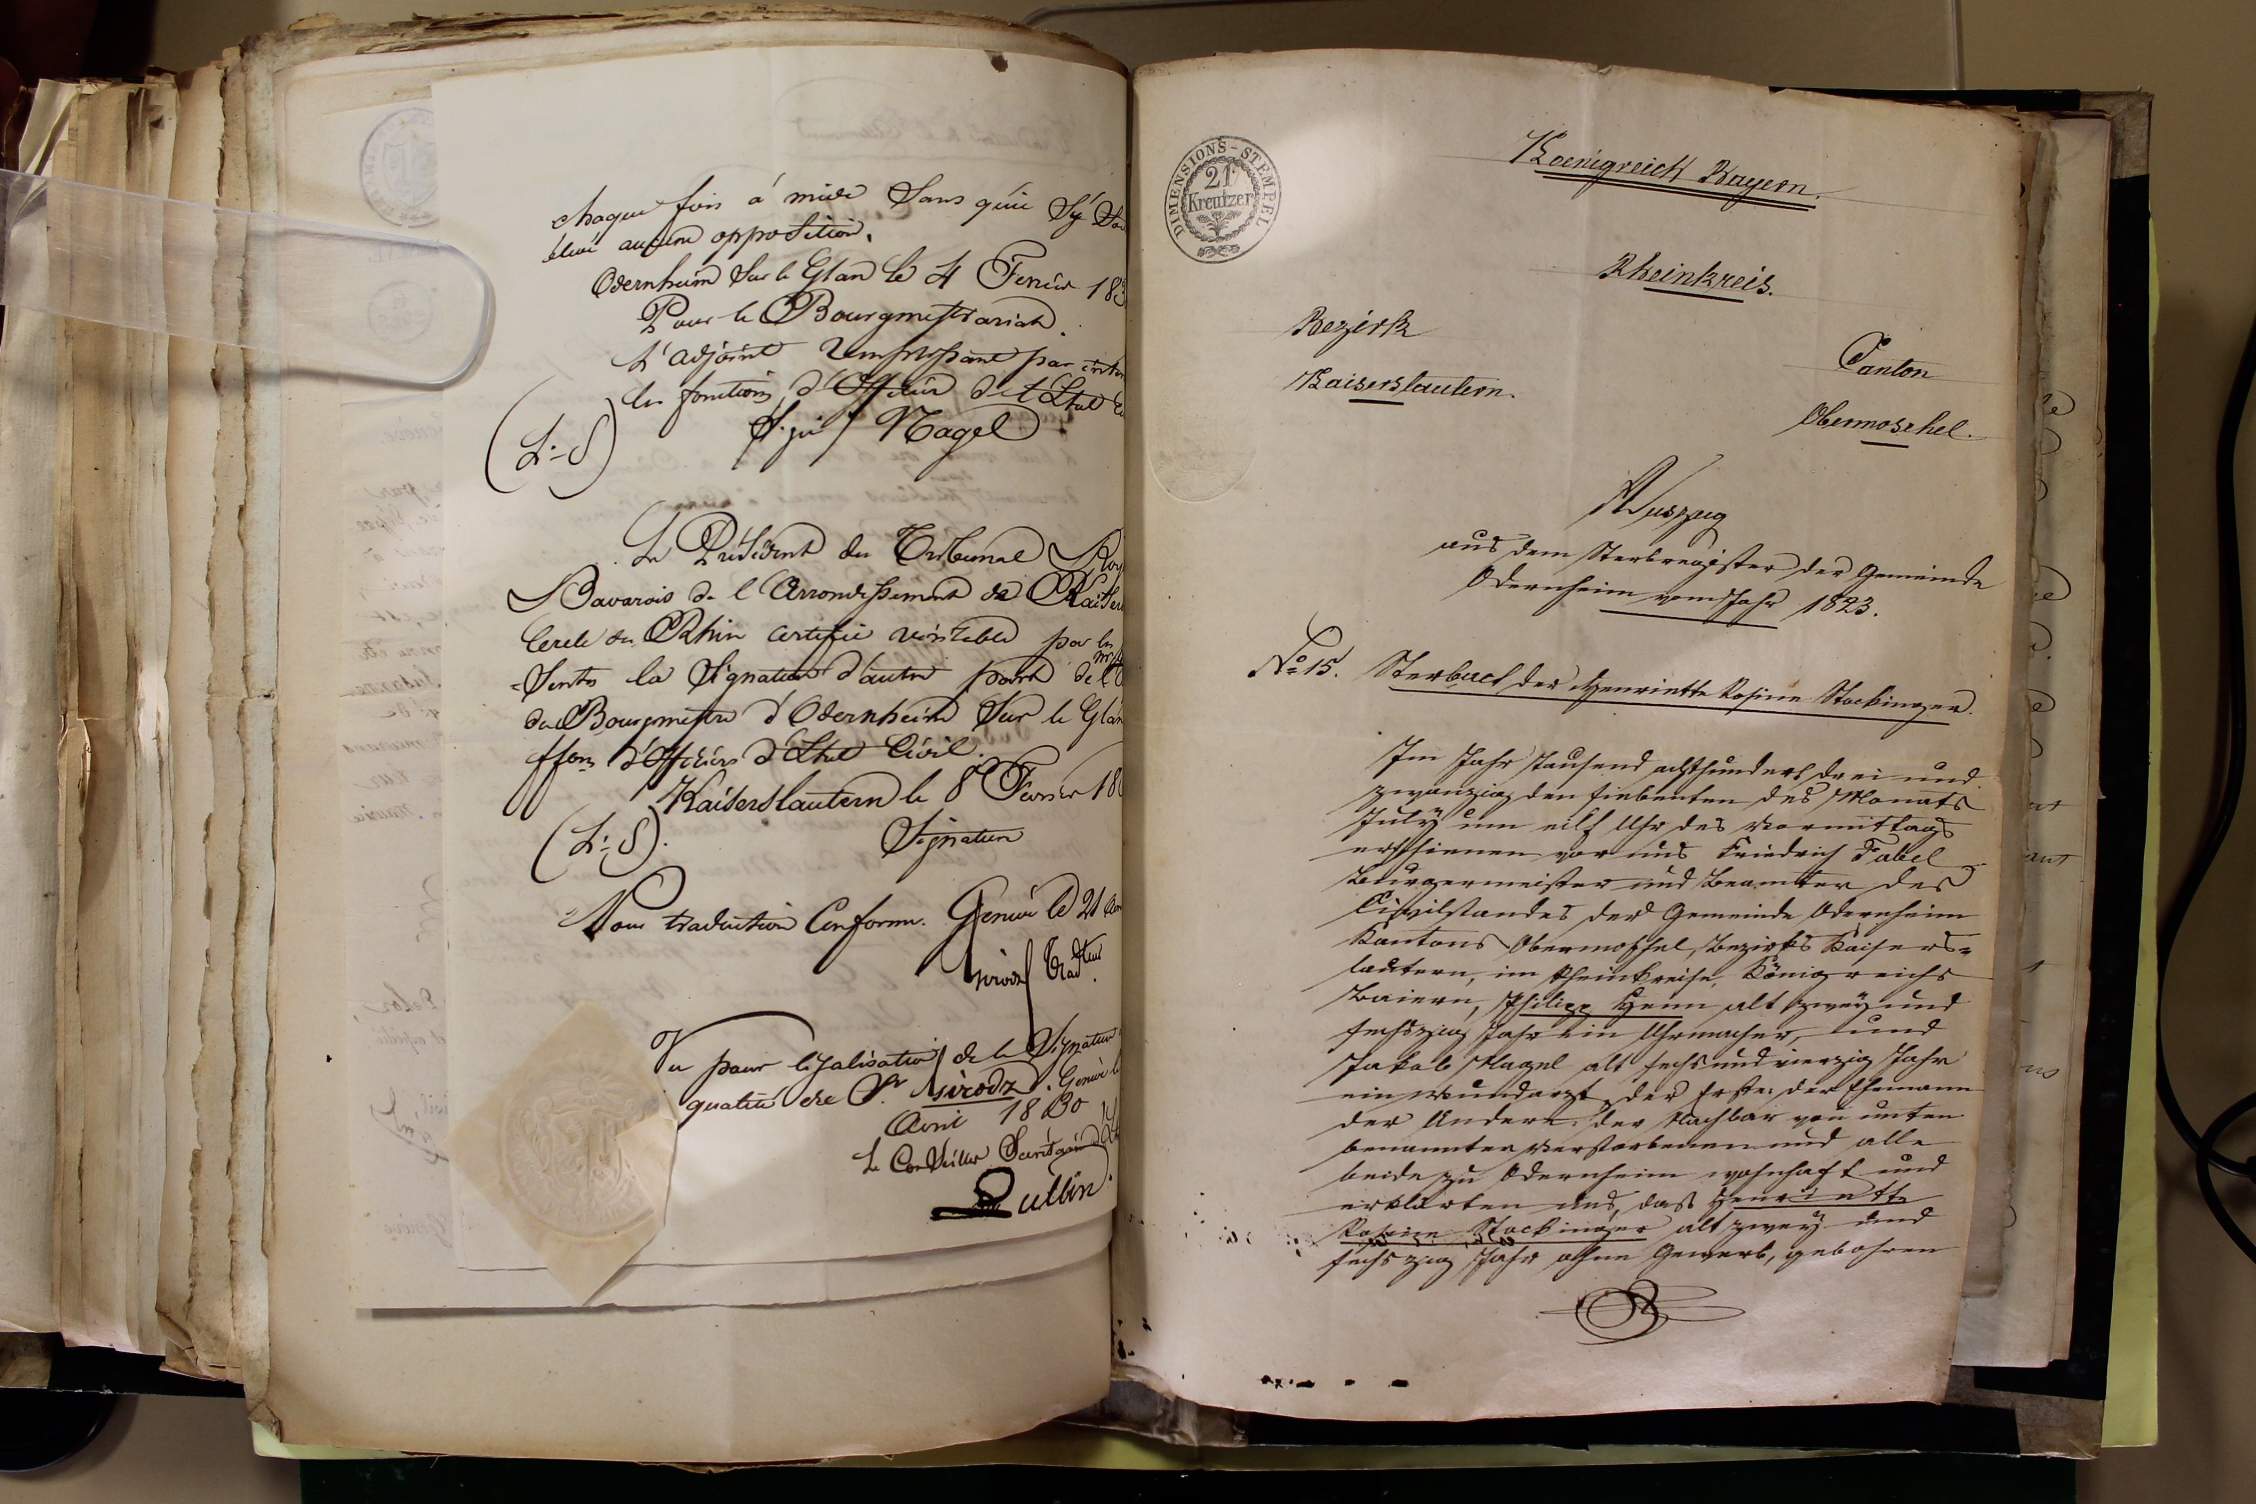 chaque fois à midi sans qu'il s'y soit
élevé aucune opposition.
Odernheim sur le Glan le 4 Fevrier 183
Pour le Bourgmestrariat.
L'adjoint remplissant par
les fonctions d'Officier de l'Etat
(L.S) Signé Nagel
Le Président du Tribunal Roy
Bavarois de l'Arrondissement de Kaisers
Cercle du Rhin certifie véritable par les
sentes la Signature d'autre part de
du Bourgmestre d'Odernheim sur le Glan
ffons d'Officier d'Etat Civil.
Kaiserslautern le 8 Fevrier 18
(L.S). Signature
Pour traduction Conforme. Genève le 21
Girodz Tradteur.
Vu pour légalisation de la Signature
qualité de Sr. Girodz. Genève le
Avril 1830
Le Conseiller Secrét
Lullin.
DIMENSIONS-STEMPEL
21
Kreutzer
Koenigreich Bayern.
Rheinkreis.
Bezirk
Kaiserslautern.
Canton
Obermoschel.
Auszug
aus dem Sterbregister der Gemeinde
Odernheim vom Jahr 1823.
No 15. Sterbact der Henriette Rosine Stockinger.
Im Jahr Tausend achthundert drei und
zwanzig den siebenten des Monats
July um eilf Uhr des Vormittags
erschienen vor uns Friedrich Fabel
Bürgermeister und Beamter des
Civilstandes der Gemeinde Odernheim
Kantons Obermoschel, Bezirks Kaisers=
lautern, im Rheinkreise, Königreichs
Baiern, Philipp Henn alt zwey und
sechszig Jahr ein Uhrmacher, und
Jakob Nagel alt sechs und vierzig Jahr
ein Wundarzt, der Erste der Ehemann
der Andere der Nachbar von unten
benannter Verstorbenen und alle
beide zu Odernheim wohnhaft und
erklärten uns, dass Henriette
Rosine Stockinger alt zwey und
sechszig Jahr ohne Gewerb, gebohren